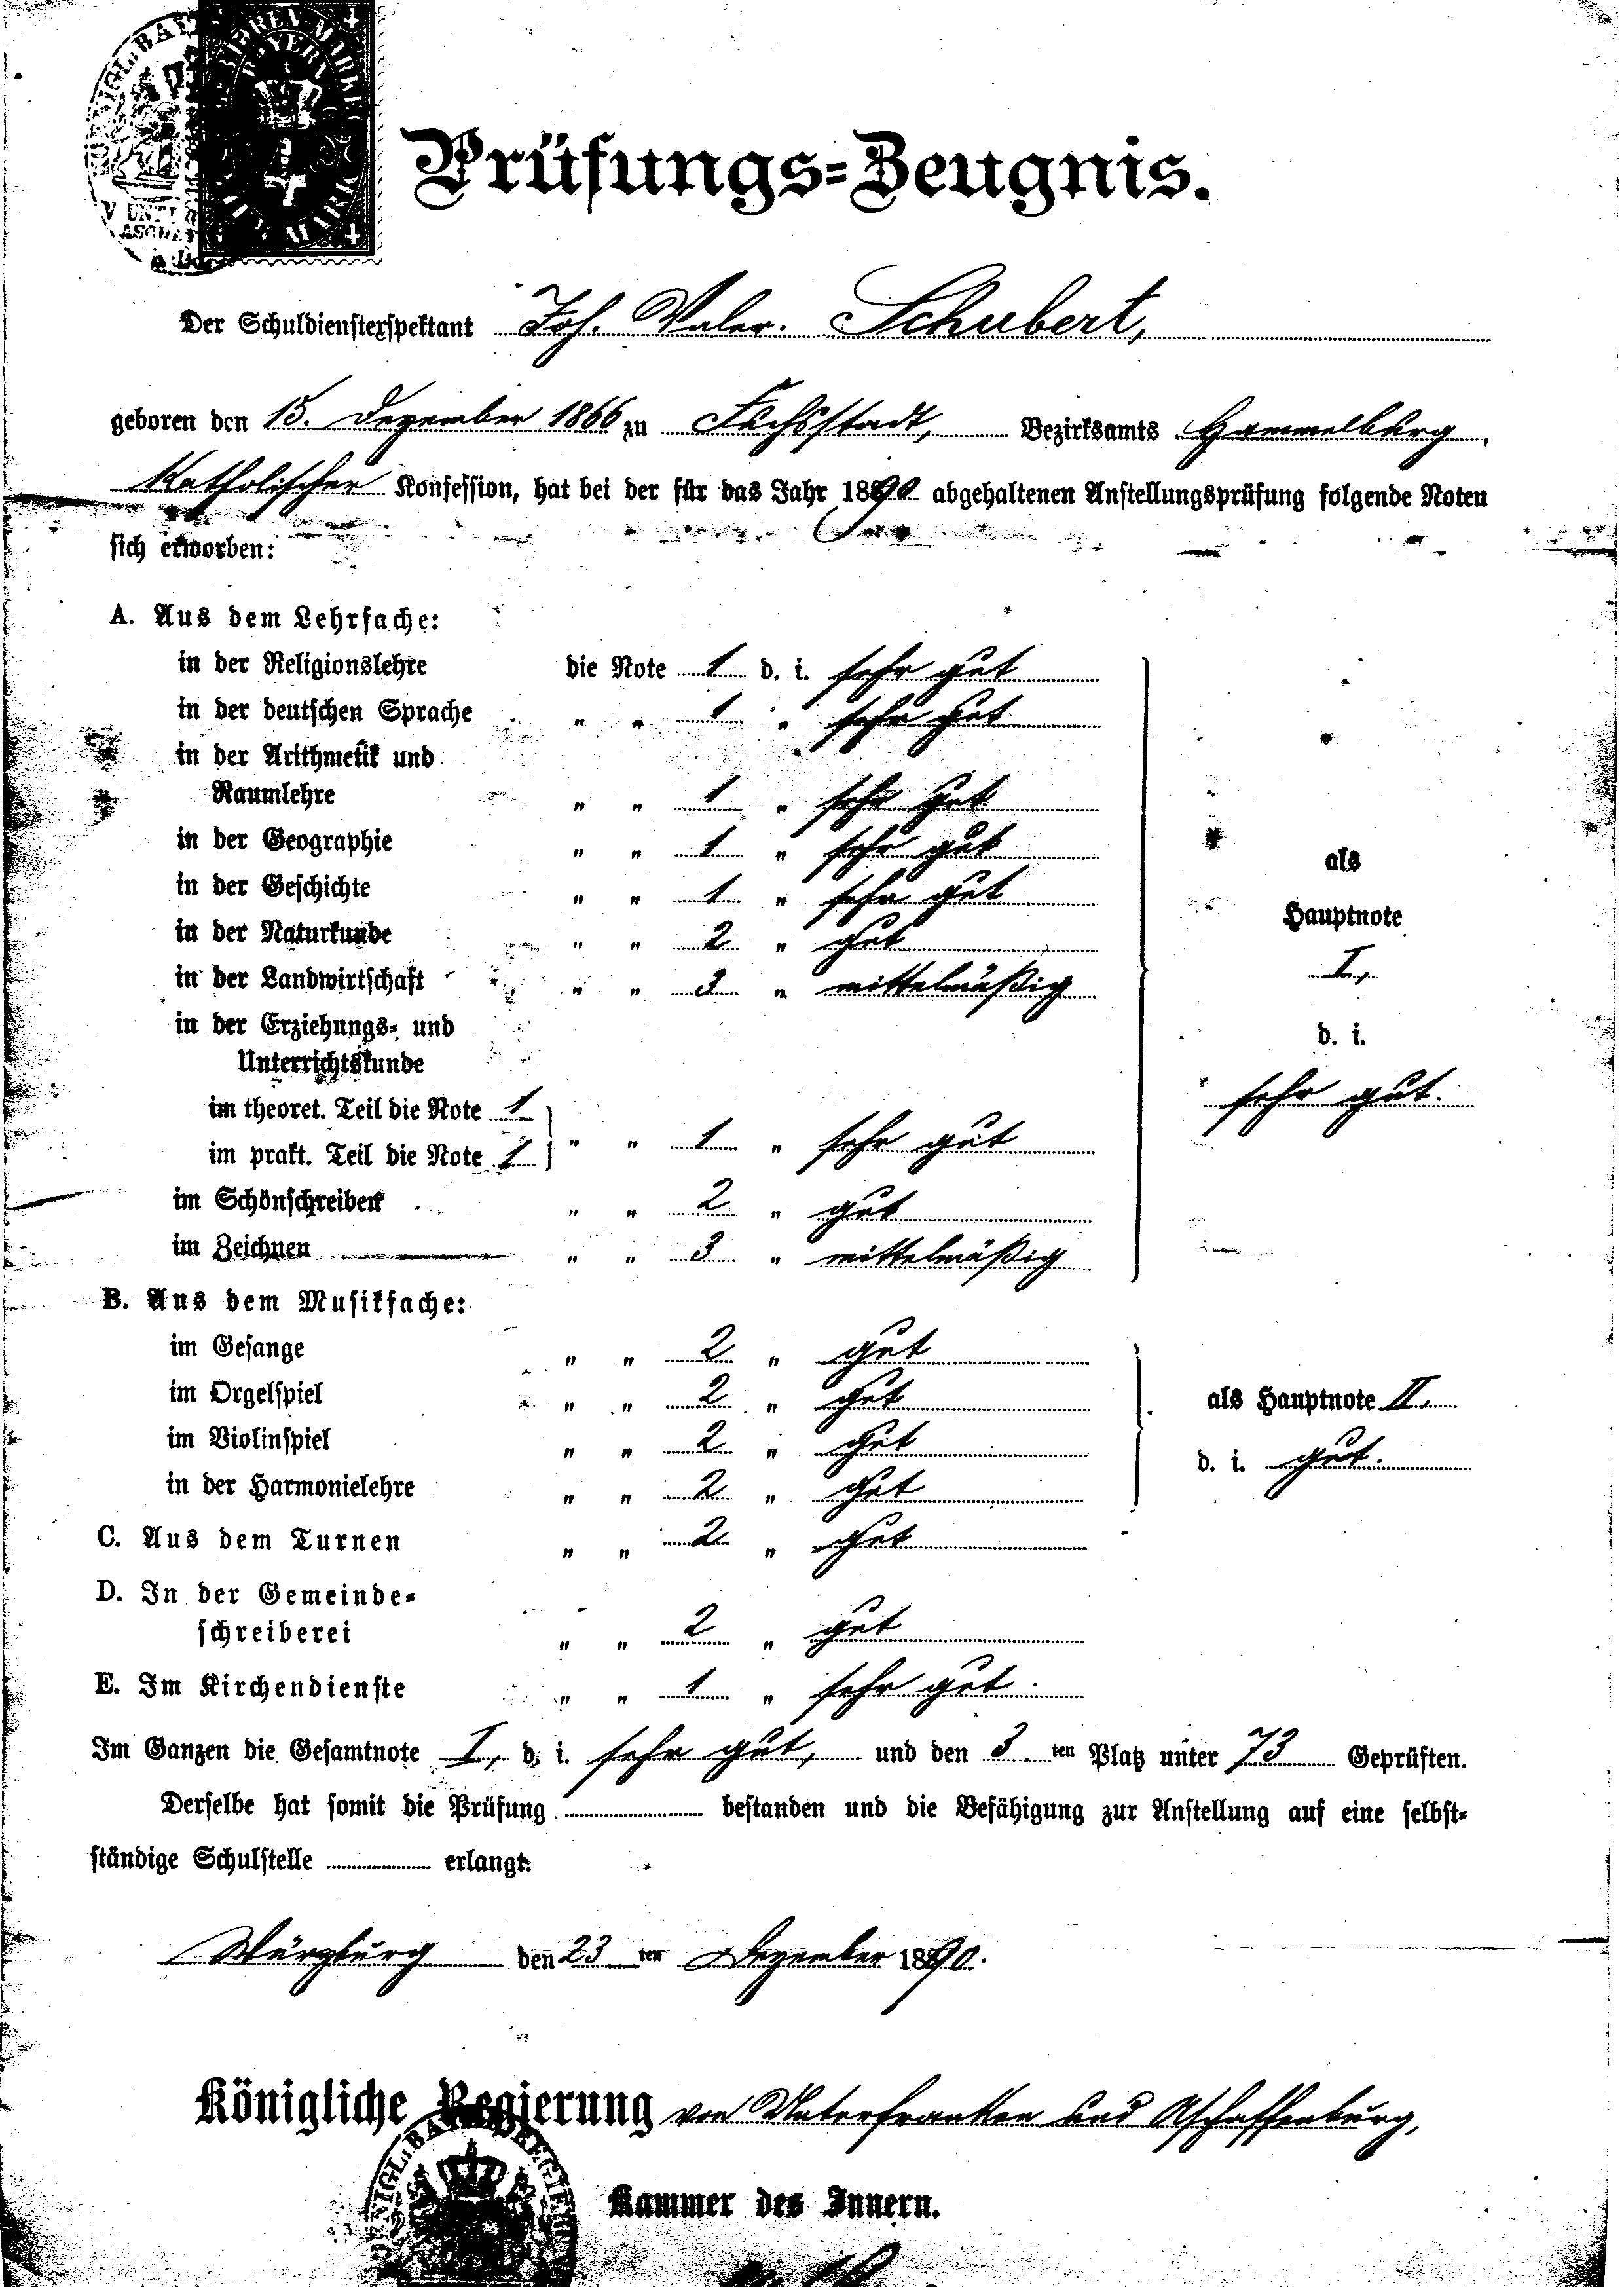 Prüfungs-Zeugnis.
Der Schuldienstexspektant Joh. Valer. Schubert,
geboren den 15. Dezember 1866 zu Fuchsstadt, Bezirksamts Hammelburg,
katholischer Konfession, hat bei der für das Jahr 1890 abgehaltenen Anstellungsprüfung folgende Noten
sich erworben:
A. Aus dem Lehrfache:
in der Religionslehre die Note 1 d. i. sehr gut
in der deutschen Sprache " " 1 " sehr gut
in der Arithmetik und
Raumlehre " " 1 " sehr gut
in der Geographie " " 1 " sehr gut
in der Geschichte " " 1 " sehr gut
in der Naturkunde " " 2 " gut
in der Landwirtschaft " " 3 " mittelmäßig
in der Erziehungs- und
Unterrichtskunde
im theoret. Teil die Note 1
im prakt. Teil die Note 1 " " 1 " sehr gut
im Schönschreiben " " 2 " gut
im Zeichnen " " 3 " mittelmäßig
als
Hauptnote
I,
d. i.
sehr gut.
B. Aus dem Musikfache:
im Gesange " " 2 " gut
im Orgelspiel " " 2 " gut
im Violinspiel " " 2 " gut
in der Harmonielehre " " 2 " gut
als Hauptnote II,
d. i. gut.
C. Aus dem Turnen " " 2 " gut
D. In der Gemeinde-
schreiberei " " 2 " gut
E. Im Kirchendienste " " 1 " sehr gut.
Im Ganzen die Gesamtnote I, d. i. sehr gut, und den 3. ten Platz unter 73 Geprüften.
Derselbe hat somit die Prüfung bestanden und die Befähigung zur Anstellung auf eine selbst-
ständige Schulstelle erlangt.
Würzburg den 23 ten Dezember 1890.
Königliche Regierung von Unterfranken und Aschaffenburg,
Kammer des Innern.